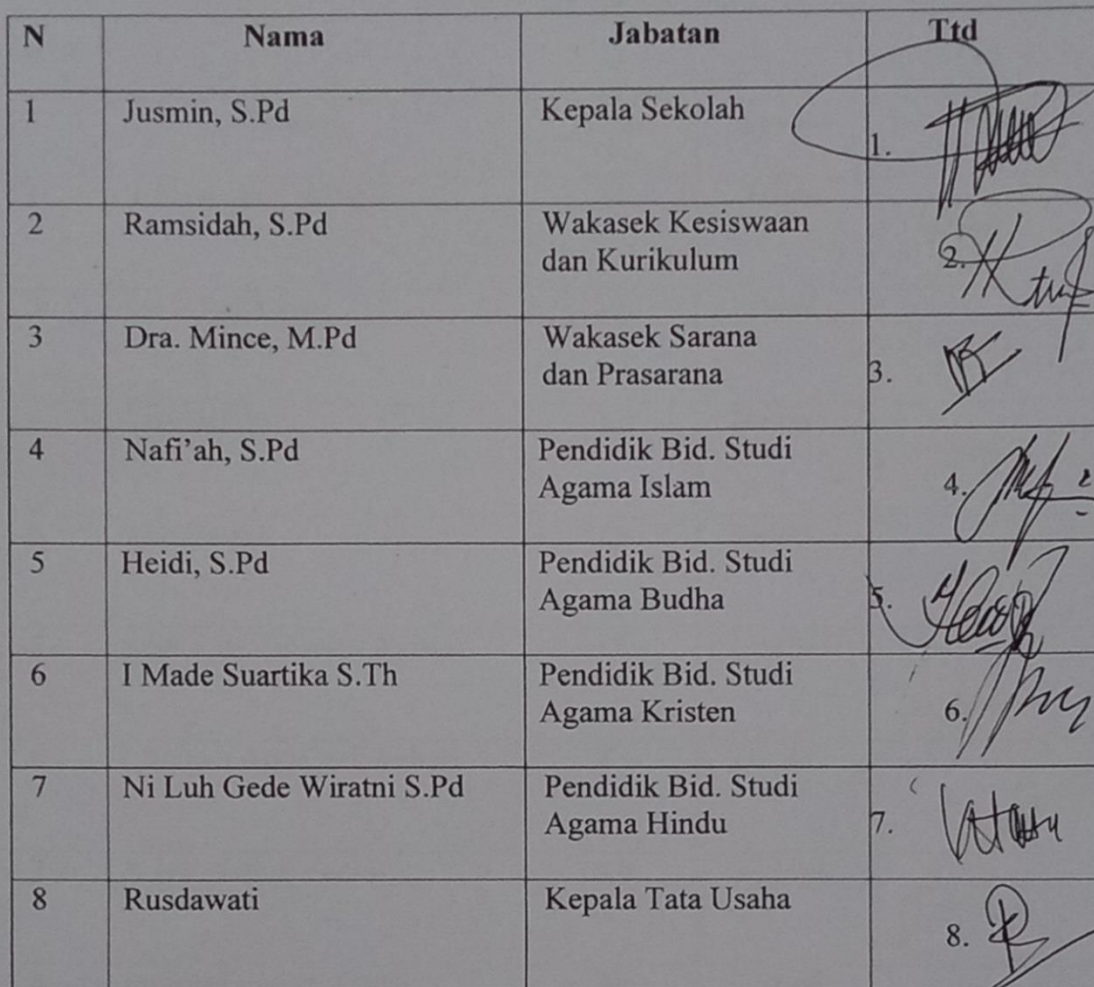 N Nama Jabatan Ttd
1 Jusmin, S.Pd Kepala Sekolah 1.
2 Ramsidah, S.Pd Wakasek Kesiswaan
dan Kurikulum 2.
3 Dra. Mince, M.Pd Wakasek Sarana
dan Prasarana 3.
4 Nafi'ah, S.Pd Pendidik Bid. Studi
Agama Islam 4.
5 Heidi, S.Pd Pendidik Bid. Studi
Agama Budha 5.
6 I Made Suartika S.Th Pendidik Bid. Studi
Agama Kristen 6.
7 Ni Luh Gede Wiratni S.Pd Pendidik Bid. Studi
Agama Hindu 7.
8 Rusdawati Kepala Tata Usaha
8.